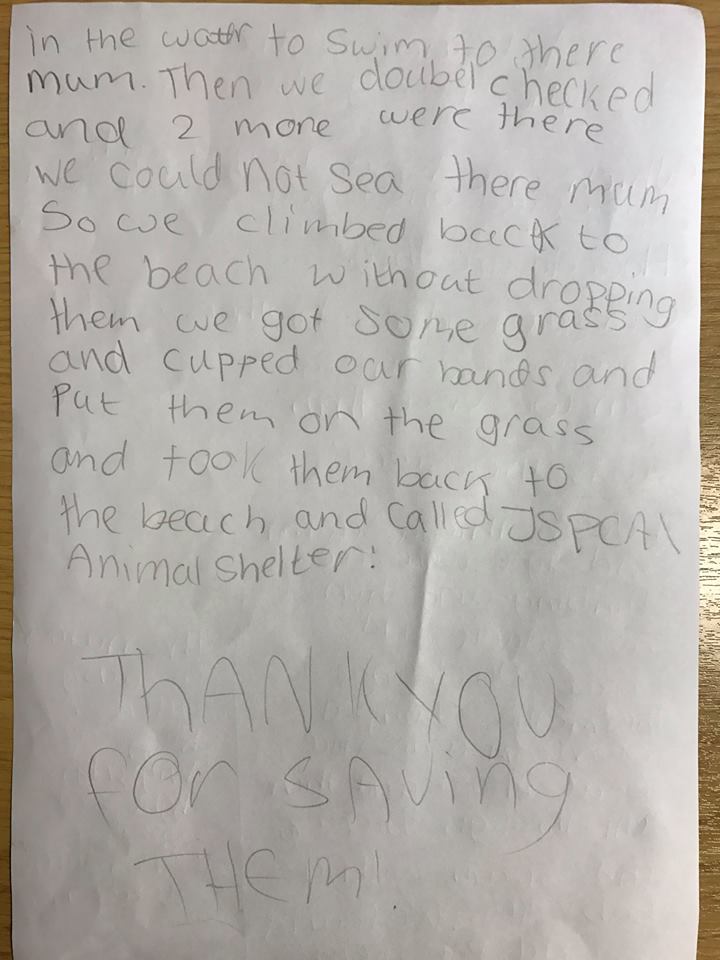 in the watr to swim to there
mum. Then we doubel checked
and 2 more were there
we could not sea there mum
So we climbed back to
the beach without dropping
them we got some grass
and cupped our hands and
Put them on the grass
and took them back to
the beach and called JSPCA
Animal Shelter!
ThANK YOU
for SAving
THEm!